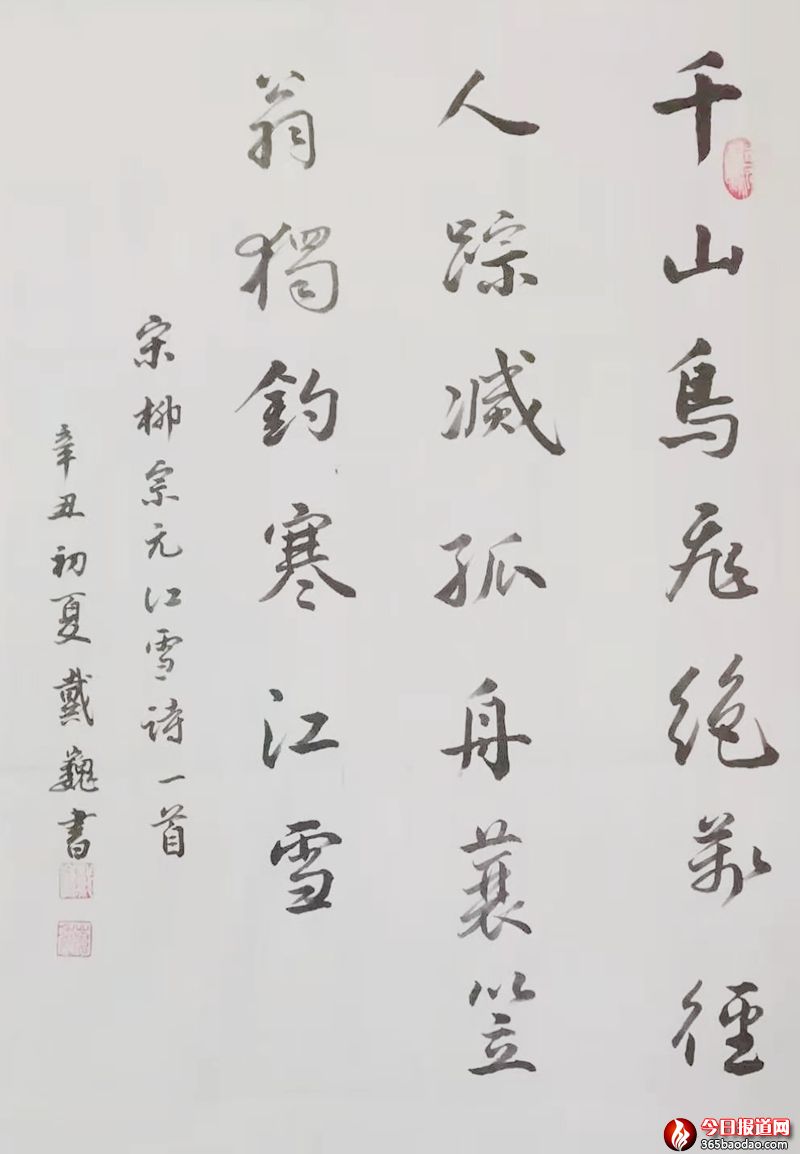 千山鸟飛絶萬徑
人踪滅孤舟蓑笠
翁獨釣寒江雪
宋柳宗元江雪诗一首
辛丑初夏戴巍書
今日报道网
365baodao.com